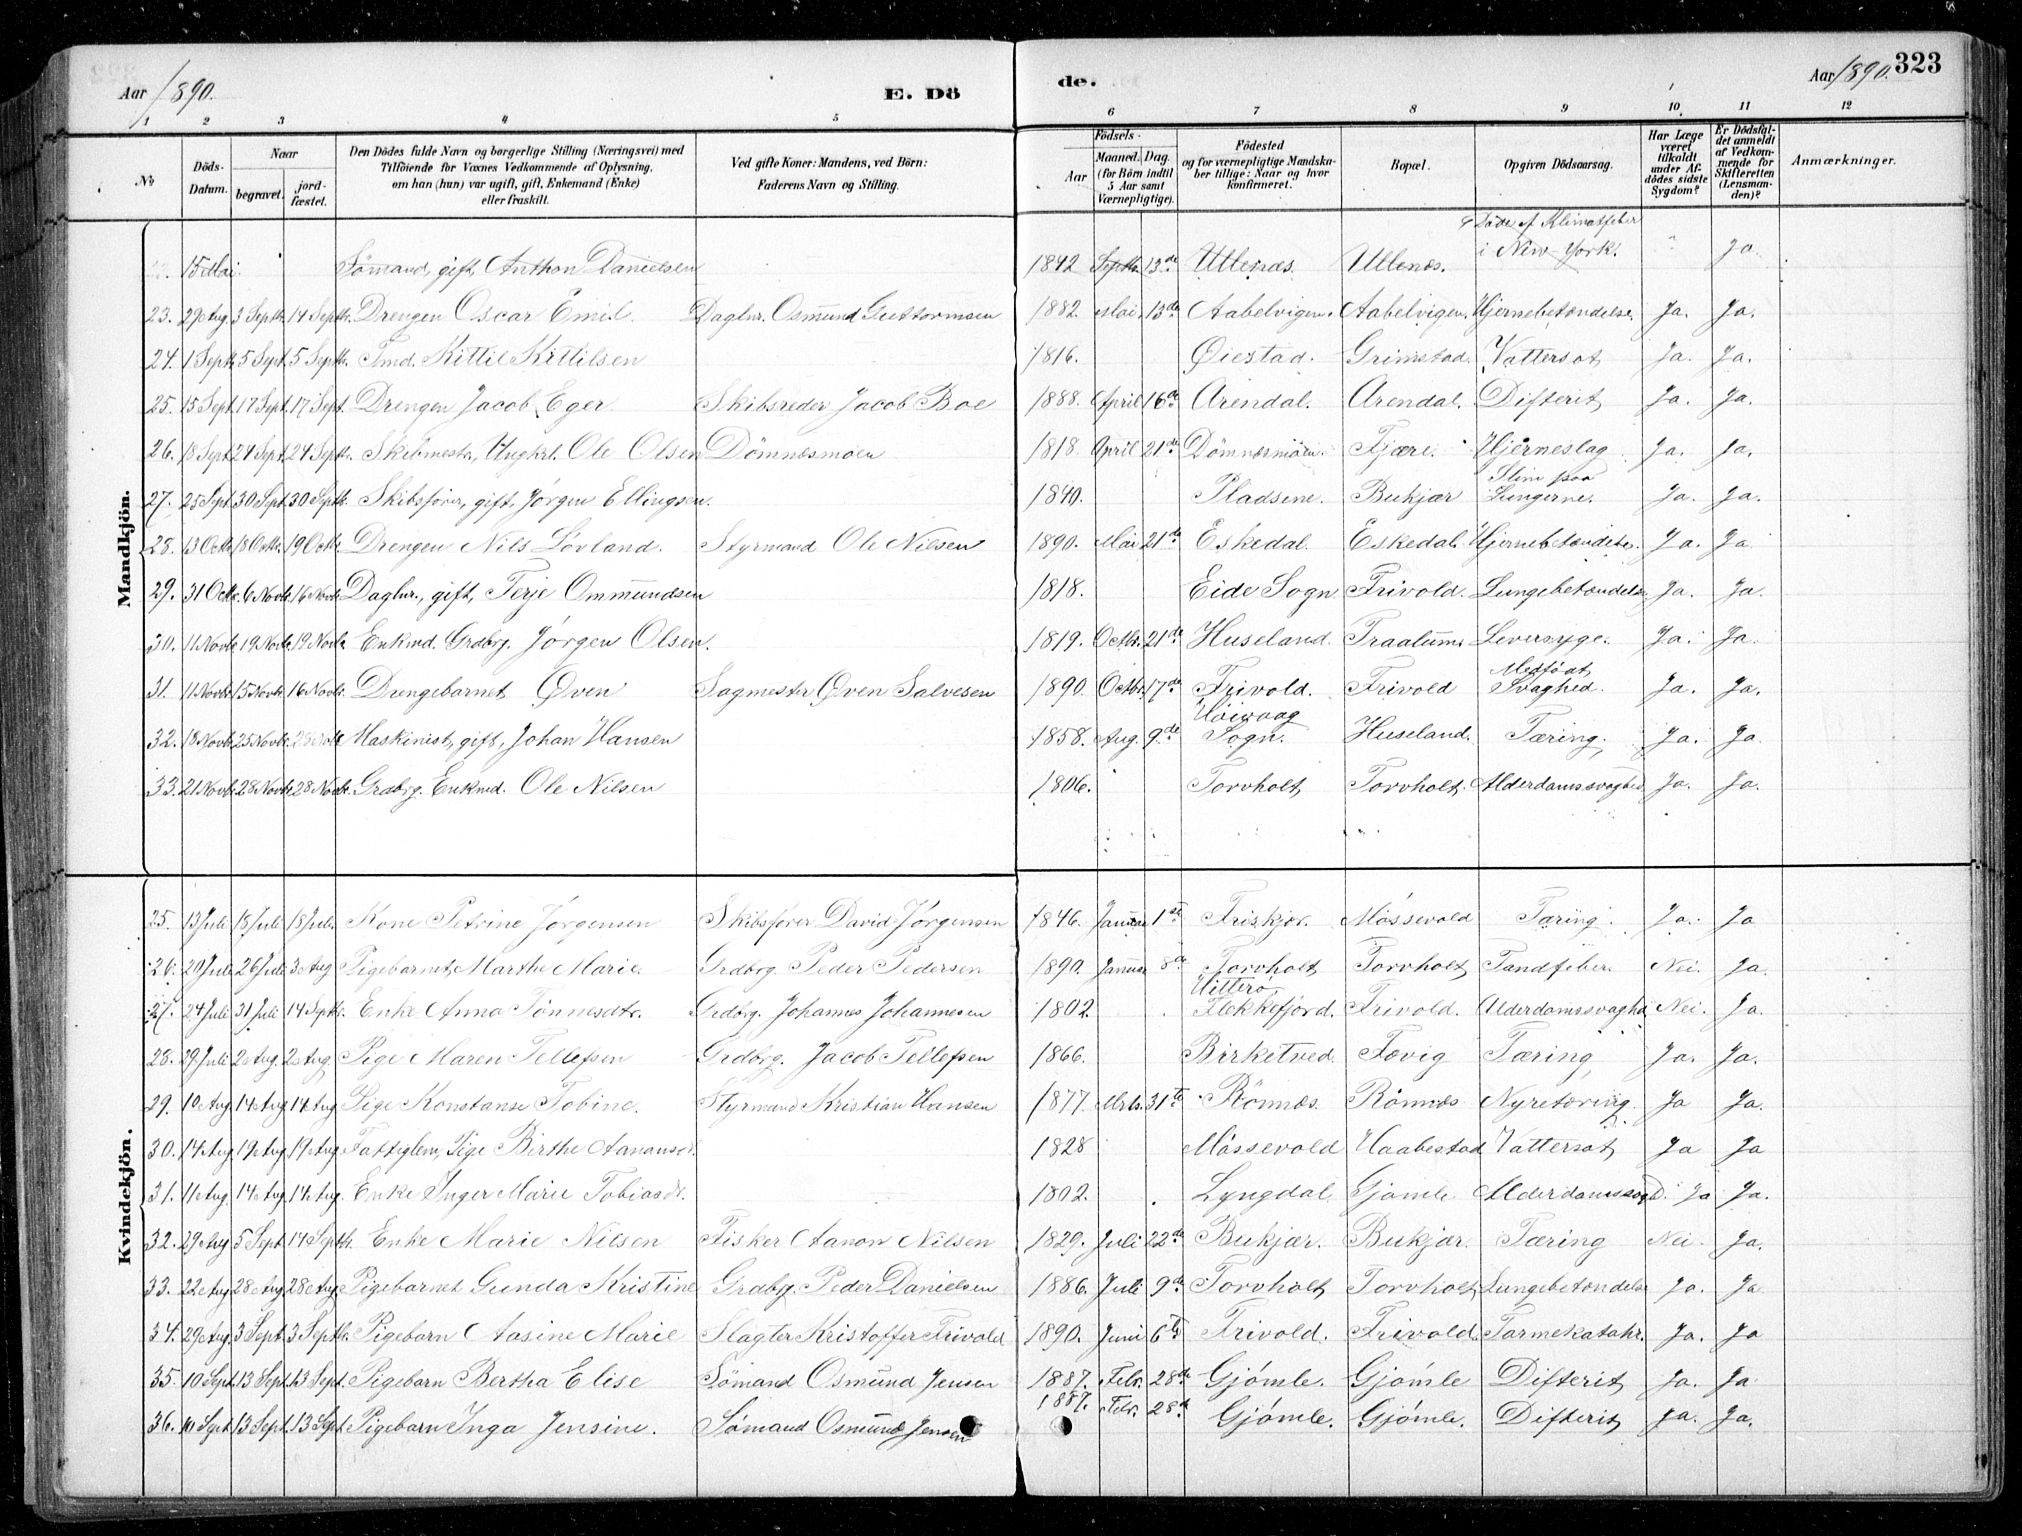 Aar 1890. E. Dö de. Aar 1890. 323
1 2 3 4 5 6 7 8 9 10 11 12
No
Döds-Datum.
Naar
begravet.
jord-fæstet.
Den Dödes fulde Navn og borgerlige Stilling (Næringsvei) med
Tilföiende for Voxnes Vedkommende af Oplysning,
om han (hun) var ugift, gift, Enkemand (Enke)
eller fraskilt.
Ved gifte Koner: Mandens, ved Börn:
Faderens Navn og Stilling.
Födsels-
Aar
Maaned. Dag.
(for Börn indtil
5 Aar samt
Værnepligtige).
Födested
og for værnepligtige Mandska-
ber tillige: Naar og hvor
konfirmeret.
Bopæl.
Opgiven Dödsaarsag.
Har Læge
været
tilkaldt
under Af-
dödes sidste
Sygdom?
Er Dödsfal-
det anmeldt
af Vedkom-
mende for
Skifteretten
(Lensman-
den)?
Anmærkninger.
Mandkjön.
Döde af Klimatfeber
15 Mai Sømand, gift, Anthon Danielsen 1842 Septbr. 13de Ullenæs. Ullenæs. i New-York. Ja.
23. 29 Aug. 3 Septbr. 14 Septbr. Drengen Oscar Emil. Daglnr. Osmund Guttormsen 1882. Mai. 13de Aabelvigen. Aabelvigen. Hjernebetændelse. Ja. Ja.
24. 1 Septbr. 5 Sept. 5 Septbr. Tmd. Kittil Kittilsen 1816. Øiestad. Grimstad. Vattersot Ja. Ja.
25. 15 Sept. 17 Sept. 17 Sept. Drengen Jacob Eger. Skibsreder Jacob Boe 1888. April 16de Arendal. Arendal. Difterit Ja. Ja.
26. 18 Sept. 24 Sept. 24 Septbr. Skibmestr, Ungkrl. Ole Olsen Dömnæsmoen 1818. April 21de Dömnæsmöen. Fjære. Hjerneslag Ja. Ja.
Slim paa
27. 25 Sept. 30 Sept. 30 Septbr. Skibsfører, gift, Jørgen Ellingsen. 1840. Pladsene. Bukjær Lungerne. Ja. Ja.
28. 13 Octbr. 18 Octbr. 19 Octbr. Drengen Nils Lövland. Styrmand Ole Nilsen 1890. Mai 21de Eskedal. Eskedal. Hjernebetændelse. Ja. Ja
29. 31 Octbr. 6 Novbr. 16 Novbr. Daglnr., gift, Terje Ommundsen 1818. Eide Sogn Frivold. Lungebetændelse Ja. Ja.
30. 11 Novbr. 19 Novbr. 19 Novbr. Enkmd. Grdbrg. Jörgen Olsen. 1819. Octbr. 21de Huseland. Traalum. Leversyge. Ja. Ja.
Medfödt
31. 11 Novbr. 15 Novbr. 16 Novbr. Drengebarnet Øven Sagmester Øven Salvesen 1890. Octbr. 17de Frivold. Frivold Svaghed. Ja. Ja.
Høivaag
32. 18 Novbr. 25 Novbr. Maskinist, gift, Johan Hansen 1858. Aug. 9de Sogn. Huseland. Tæring, Ja. Ja.
33. 21 Novbr. 28 Novbr. 28 Novbr. Grdbrg. Enkmd. Ole Nilsen 1806. Torvholt Torvholt. Alderdomssvaghed Ja. Ja.
Kvindekjön.
25. 13 Juli 18 Juli 18 Juli Kone Petrine Jörgensen Skibsfører David Jörgensen 1846. Januar 1ste Friskjør. Mössevold Tæring. Ja. Ja
26. 20 Juli 26 Juli 3 Aug Pigebarnet Marthe Marie. Grdbrg. Peder Pedersen 1890. Januar 8de Torvholt Torvholt Tandfeber. Nei. Ja.
Hitterø
27. 24 Juli 31 Juli 14 Septbr. Enke Anna Tönnesdtr. Grdbrg. Johannes Johannesen 1802. Flekkefjord. Frivold. Alderdomssvaghd. Nei. Ja.
28. 29 Juli 2 Aug. 2 Aug. Pige Maren Tellefsen Grdbrg. Jacob Tellefsen 1866. Birketved. Fævig Tæring, Ja. Ja.
29. 10 Aug. 14 Aug. 14 Aug. Pige Konstanse Tobine. Styrmand Kristian Hansen 1877. Mrts. 31te Rönnæs. Rönnæs Nyretæring. Ja Ja.
30. 14 Aug. 19 Aug. 19 Aug. Fattiglem, Pige Birthe Aanonsd. 1828 Mössevold Haabestad Vattersot Ja Ja
31. 11 Aug. 14 Aug. 14 Aug. Enke Inger Marie Tobiasdr. 1802. Lyngdal Gjömle Alderdomssvgd. Ja Ja.
32. 29 Aug 5 Sept. 14 Septbr. Enke Marie Nilsen Fisker Aanon Nilsen 1829. Juli 22de Bukjær. Bukjær. Tæring Nei. Ja.
33. 22 Aug 28 Aug 28 Aug. Pigebarnet Gunda Kristine Grdbrg. Peder Danielsen 1886. Juli 9de Torvholt Torvholt Lungebetændelse Ja. Ja
34. 29 Aug. 3 Sept. 3 Septbr. Pigebarn Aasine Marie Slagter Kristoffer Frivold 1890. Juni 6te Frivold. Frivold. Tarmekatahr. Ja. Ja
35. 10 Sept. 13 Sept. 13 Sept. Pigebarn Bertha Elise Sömand Osmund Jensen 1887. Febr. 28de Gjömle. Gjömle Difterit Ja. Ja
36. 10 Sept. 13 Sept. 13 Sept. Pigebarn Inga Jensine. Sömand Osmund Jensen 1887. Febr. 28de Gjömle. Gjömle. Difterit Ja. Ja.